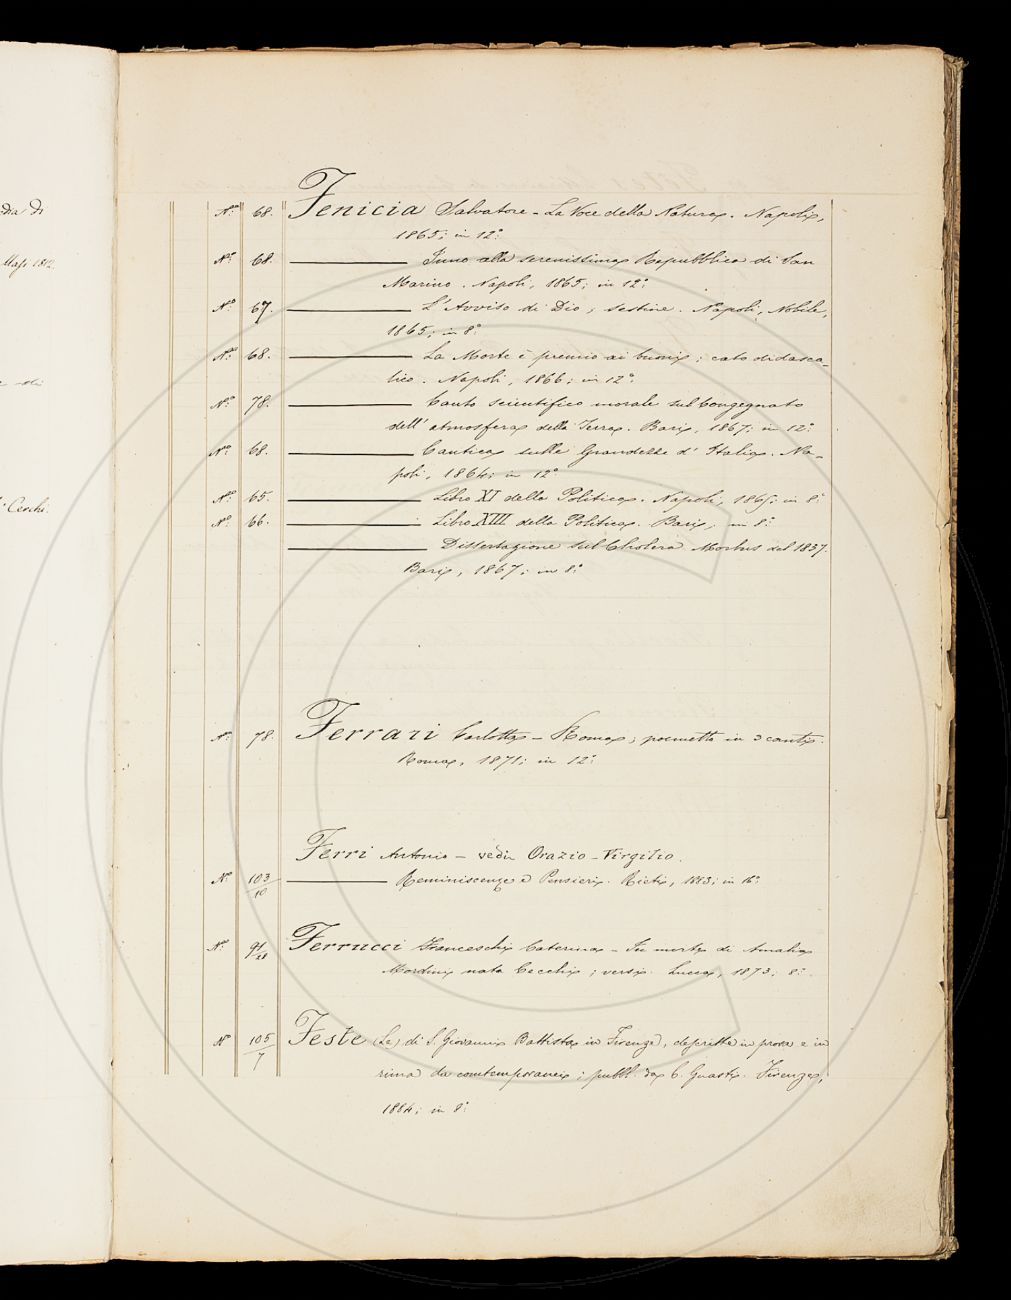 dia di
Mass. 1812.
e di
Cerchi.
N.º 68. Fenicia Salvatore – La Voce della Natura. Napoli,
1865; in 12º
N.º 68. ——— Inno alla serenissima Repubblica di San
Marino. Napoli, 1865; in 12º
N.º 67. ——— L'Avviso di Dio, sestine. Napoli, Nobile,
1865; in 8º
N.º 68. ——— La Morte è premio ai buoni; cato didasca-
lico. Napoli, 1866; in 12º
N.º 78. ——— Canto scientifico morale sul Congegnato
dell'atmosfera della Terra. Bari, 1867; in 12º
N.º 68. ——— Cantica sulle Grandezze d'Italia. Na-
poli, 1864; in 12º
N.º 65. ——— Libro XI della Politica. Napoli, 1865; in 8º
N.º 66. ——— Libro XIII della Politica. Bari, in 8º
——— Dissertazione sul Cholera Morbus del 1837.
Bari, 1867; in 8º
N.º 78. Ferrari Carlotta – Roma; poemetto in 3 canti.
Roma, 1871; in 12º
Ferri Antonio – vedi Orazio – Virgilio.
N.º 103/10 ——— Reminiscenze e Pensieri. Rieti, 1883; in 16º
N.º 91/20 Ferrucci Franceschi Caterina – In morte di Amalia
Mordini nata Cecchi; versi. Lucca, 1873; 8º
N.º 105/7 Feste (Le) di S. Giovanni Battista in Firenze, descritte in prosa e in
rima da contemporanei; pubbl. da C. Guasti. Firenze,
1884; in 8º